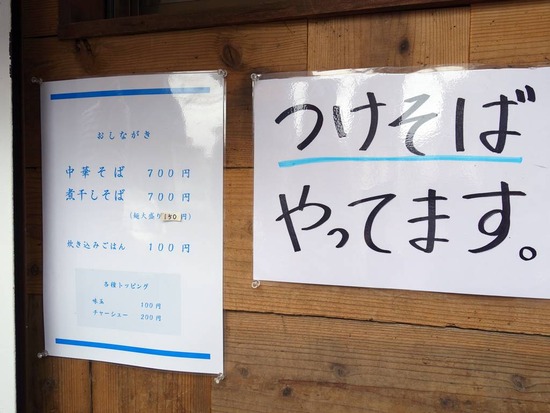 おしながき
中華そば 700円
煮干しそば 700円
(麺大盛り150円)
炊き込みごはん 100円
各種トッピング
味玉 100円
チャーシュー 200円
つけそば
やってます。